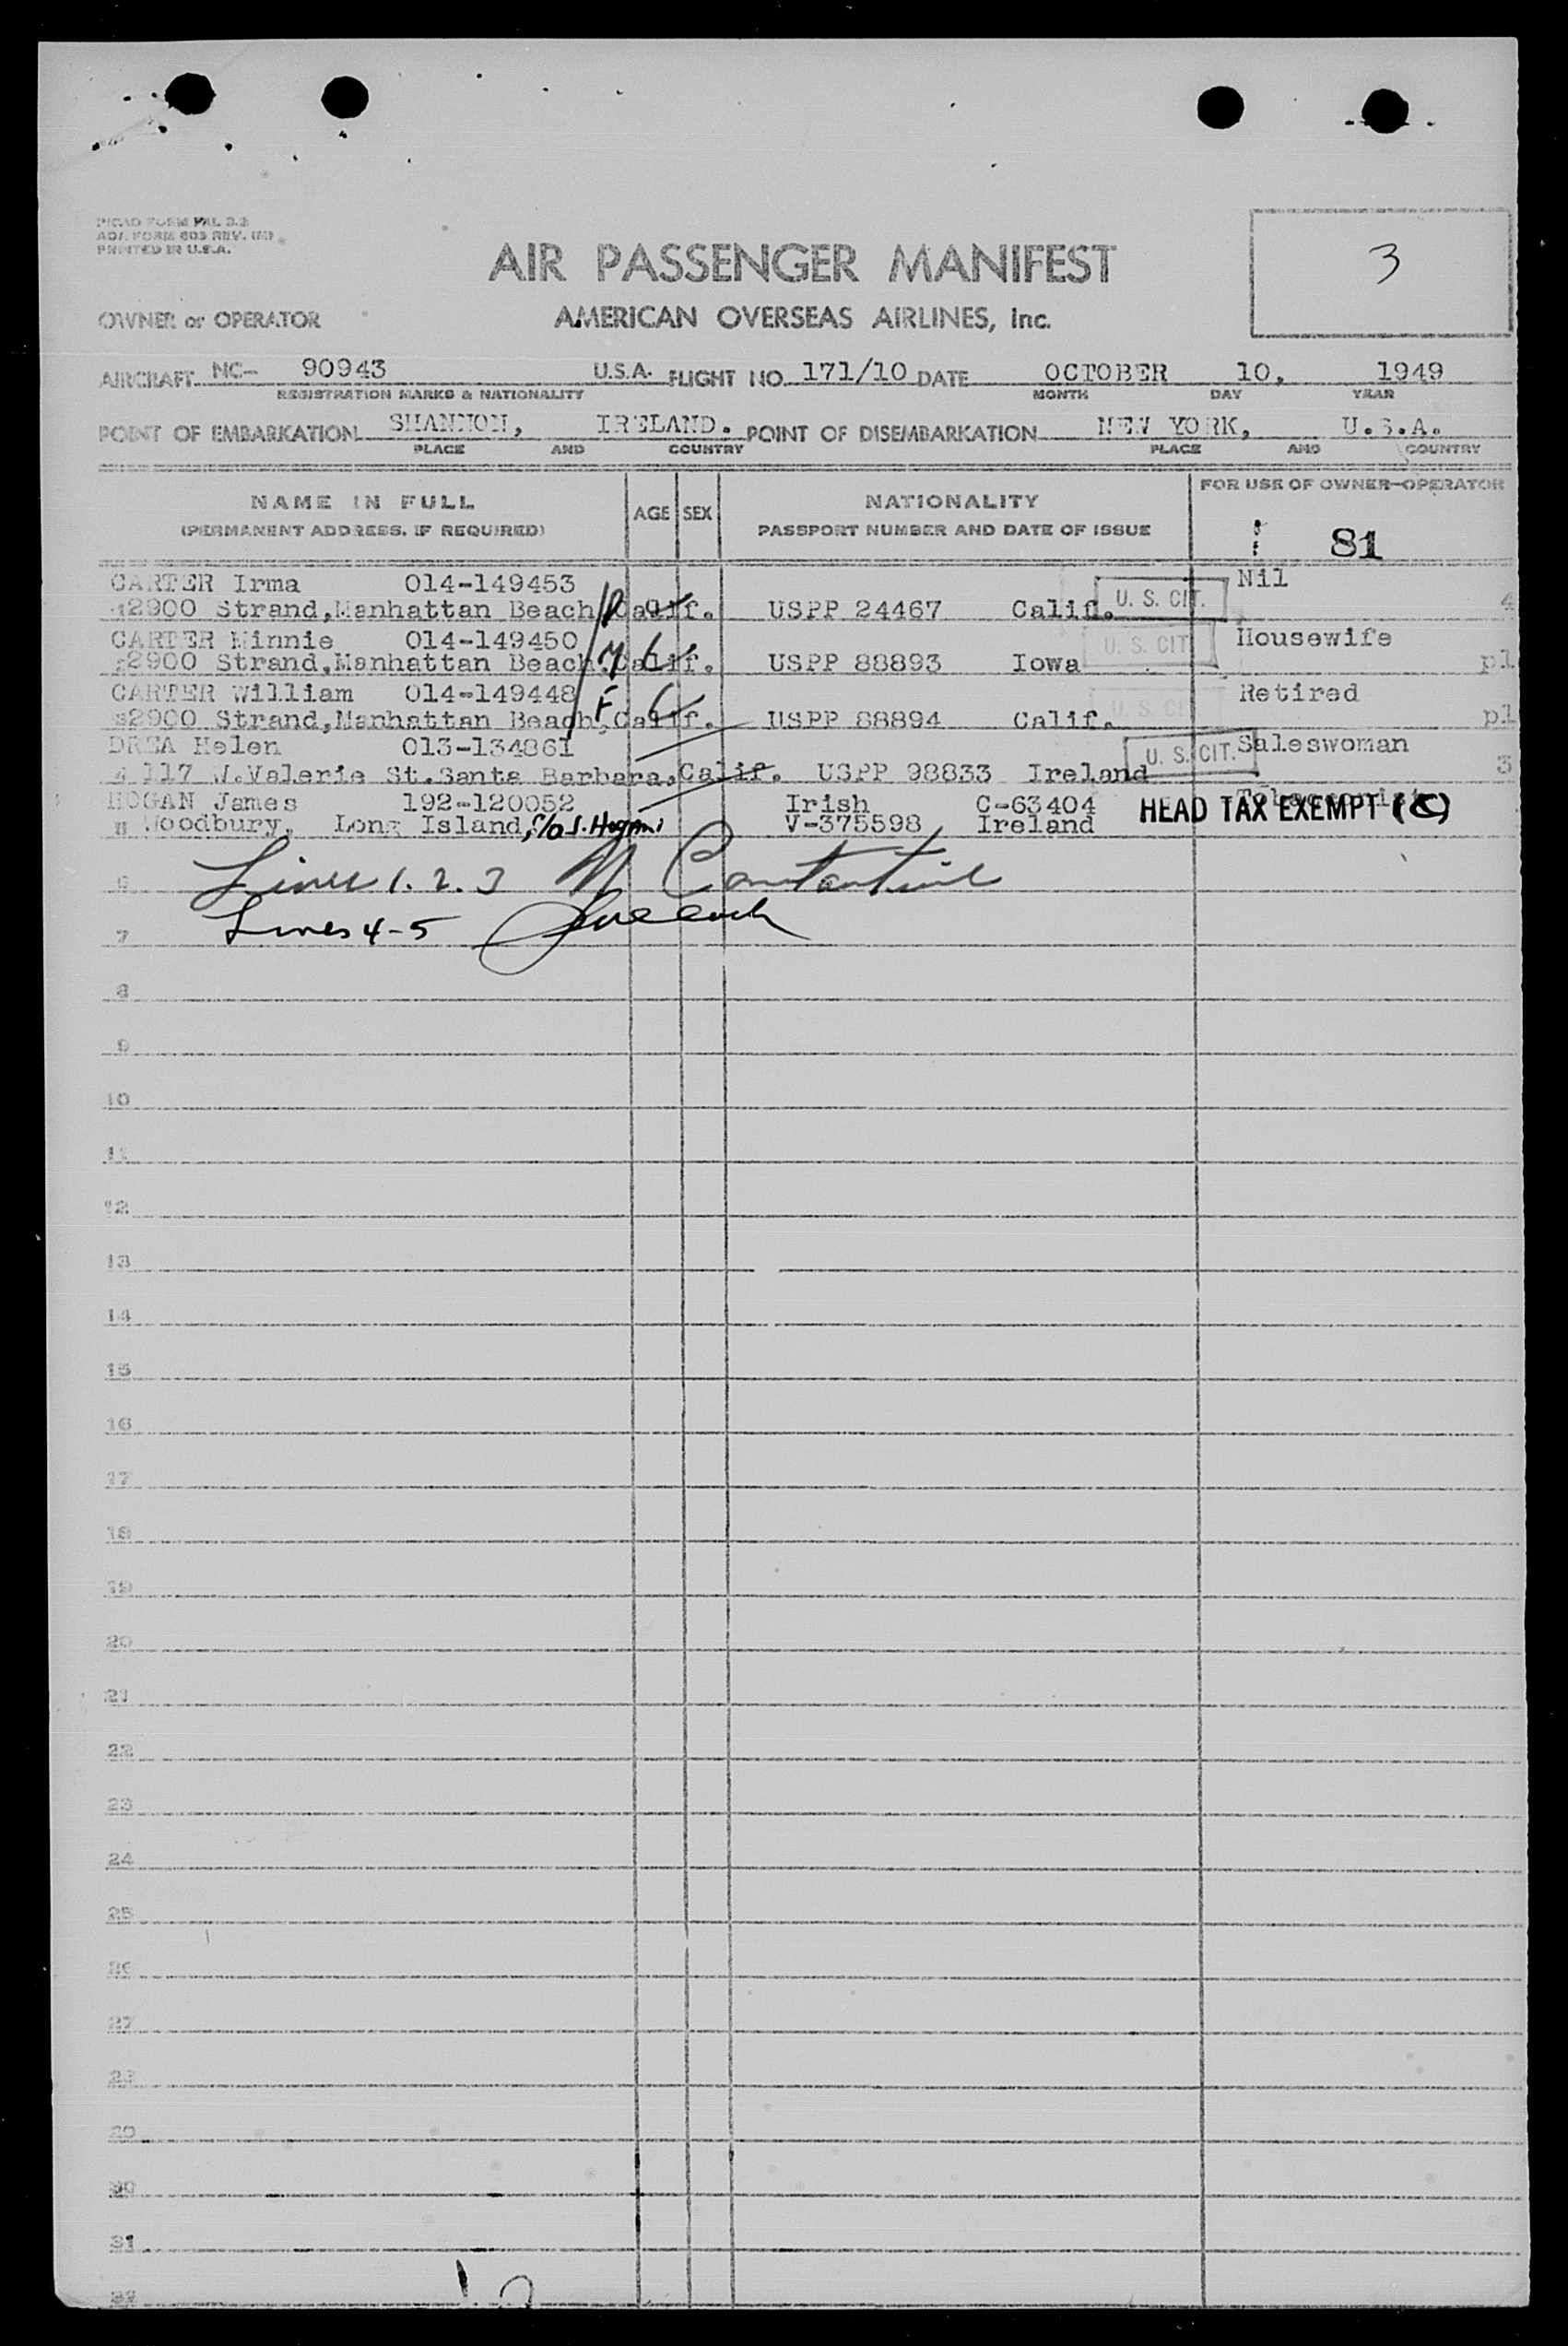 ICAO FORM PAL 2.2
AOA FORM 603 REV.
PRINTED IN U.S.A.
AIR PASSENGER MANIFEST
3
OWNER or OPERATOR
AMERICAN OVERSEAS AIRLINES, Inc.
AIRCRAFT NC- 90943 U.S.A. FLIGHT NO. 171/10 DATE OCTOBER 10, 1949
REGISTRATION MARKS & NATIONALITY MONTH DAY YEAR
POINT OF EMBARKATION SHANNON, IRELAND. POINT OF DISEMBARKATION NEW YORK, U.S.A.
PLACE AND COUNTRY PLACE AND COUNTRY
NAME IN FULL AGE SEX NATIONALITY FOR USE OF OWNER-OPERATOR
(PERMANENT ADDRESS, IF REQUIRED) PASSPORT NUMBER AND DATE OF ISSUE
81
CARTER Irma 014-149453 U. S. CIT. Nil
1 2900 Strand,Manhattan Beach, Calif. USPP 24467 Calif. 4
CARTER Minnie 014-149450 U. S. CIT. Housewife
2 2900 Strand,Manhattan Beach,Calif. USPP 88893 Iowa pl
CARTER William 014-149448 F U. S. CIT. Retired
3 2900 Strand,Manhattan Beach,Calif. USPP 88894 Calif. pl
DREA Helen 013-134861 U. S. CIT. Saleswoman
4 117 W.Valerie St.Santa Barbara,Calif. USPP 98833 Ireland 3
HOGAN James 192-120052 Irish C-63404 HEAD TAX EXEMPT (C)
5 Woodbury, Long Island, c/o J. Hogan V-375598 Ireland
6 Lines 1. 2. 3 M Constantine
7 Lines 4-5
8
9
10
11
12
13
14
15
16
17
18
19
20
21
22
23
24
25
26
27
28
29
30
31
32